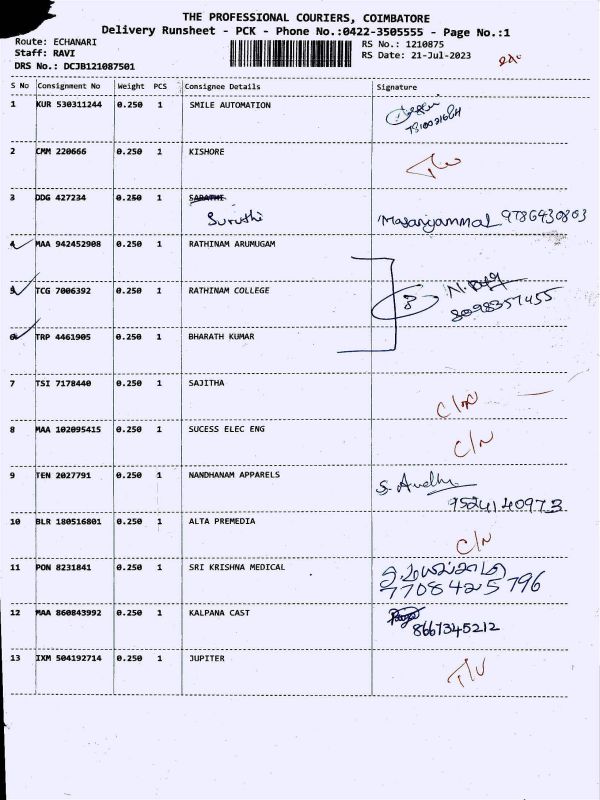 THE PROFESSIONAL COURIERS, COIMBATORE
Delivery Runsheet - PCK - Phone No.:0422-3505555 - Page No.:1
Route: ECHANARI
Staff: RAVI
DRS No.: DCJB121087501
RS No.: 1210875
RS Date: 21-Jul-2023
S No Consignment No Weight PCS Consignee Details Signature
1 KUR 530311244 0.250 1 SMILE AUTOMATION
2 CMM 220666 0.250 1 KISHORE
3 DDG 427234 0.250 1 SARATHI
Suruthi Masaniyammal 9786930803
4 MAA 942452908 0.250 1 RATHINAM ARUMUGAM
5 TCG 7006392 0.250 1 RATHINAM COLLEGE 8
8098357455
6 TRP 4461905 0.250 1 BHARATH KUMAR
7 TSI 7178440 0.250 1 SAJITHA C/N
8 MAA 102095415 0.250 1 SUCESS ELEC ENG C/N
9 TEN 2027791 0.250 1 NANDHANAM APPARELS
9524140973
10 BLR 180516801 0.250 1 ALTA PREMEDIA C/N
11 PON 8231841 0.250 1 SRI KRISHNA MEDICAL
7708425796
12 MAA 860843992 0.250 1 KALPANA CAST
8667345212
13 IXM 504192714 0.250 1 JUPITER